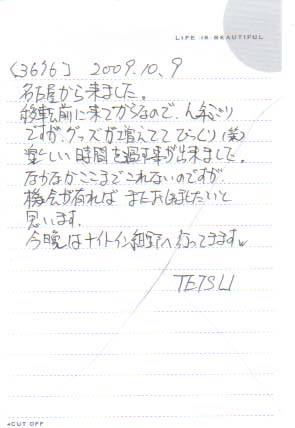 LIFE IS BEAUTIFUL
[3696] 2009.10.9
名古屋から来ました。
移転前に来てからなので、
ですが、グッズが増えてて びっくり(笑)
楽しい時間を過す事が出来ました。
なかなかここまでこれないのですが
機会が有れば またおじゃましたいと
思います。
今晩はナイトイン
へ行ってきます
TETSU
◂CUT OFF